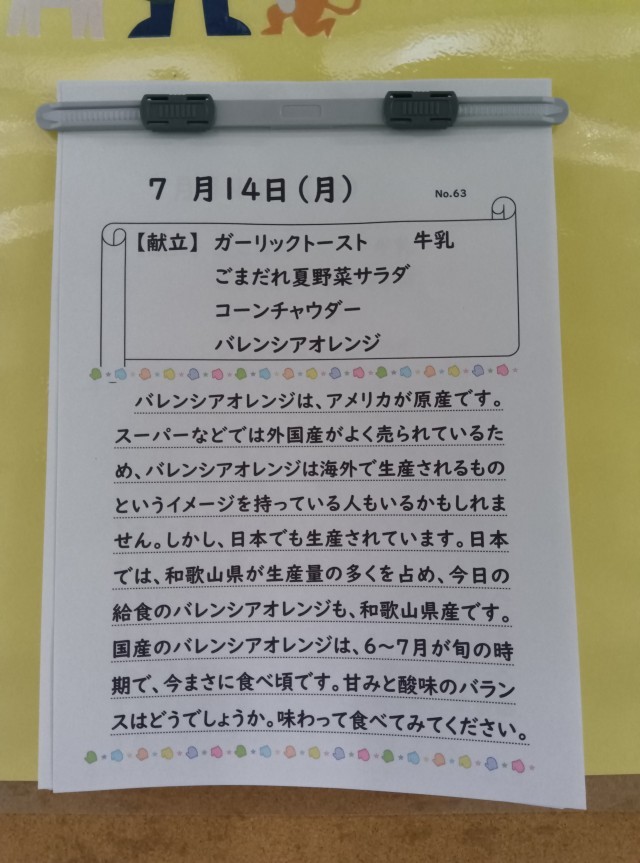 7月14日(月)
No.63
【献立】 ガーリックトースト 牛乳
ごまだれ夏野菜サラダ
コーンチャウダー
バレンシアオレンジ
バレンシアオレンジは、アメリカが原産です。
スーパーなどでは外国産がよく売られているた
め、バレンシアオレンジは海外で生産されるもの
というイメージを持っている人もいるかもしれま
せん。しかし、日本でも生産されています。日本
では、和歌山県が生産量の多くを占め、今日の
給食のバレンシアオレンジも、和歌山県産です。
国産のバレンシアオレンジは、6〜7月が旬の時
期で、今まさに食べ頃です。甘みと酸味のバラン
スはどうでしょうか。味わって食べてみてください。